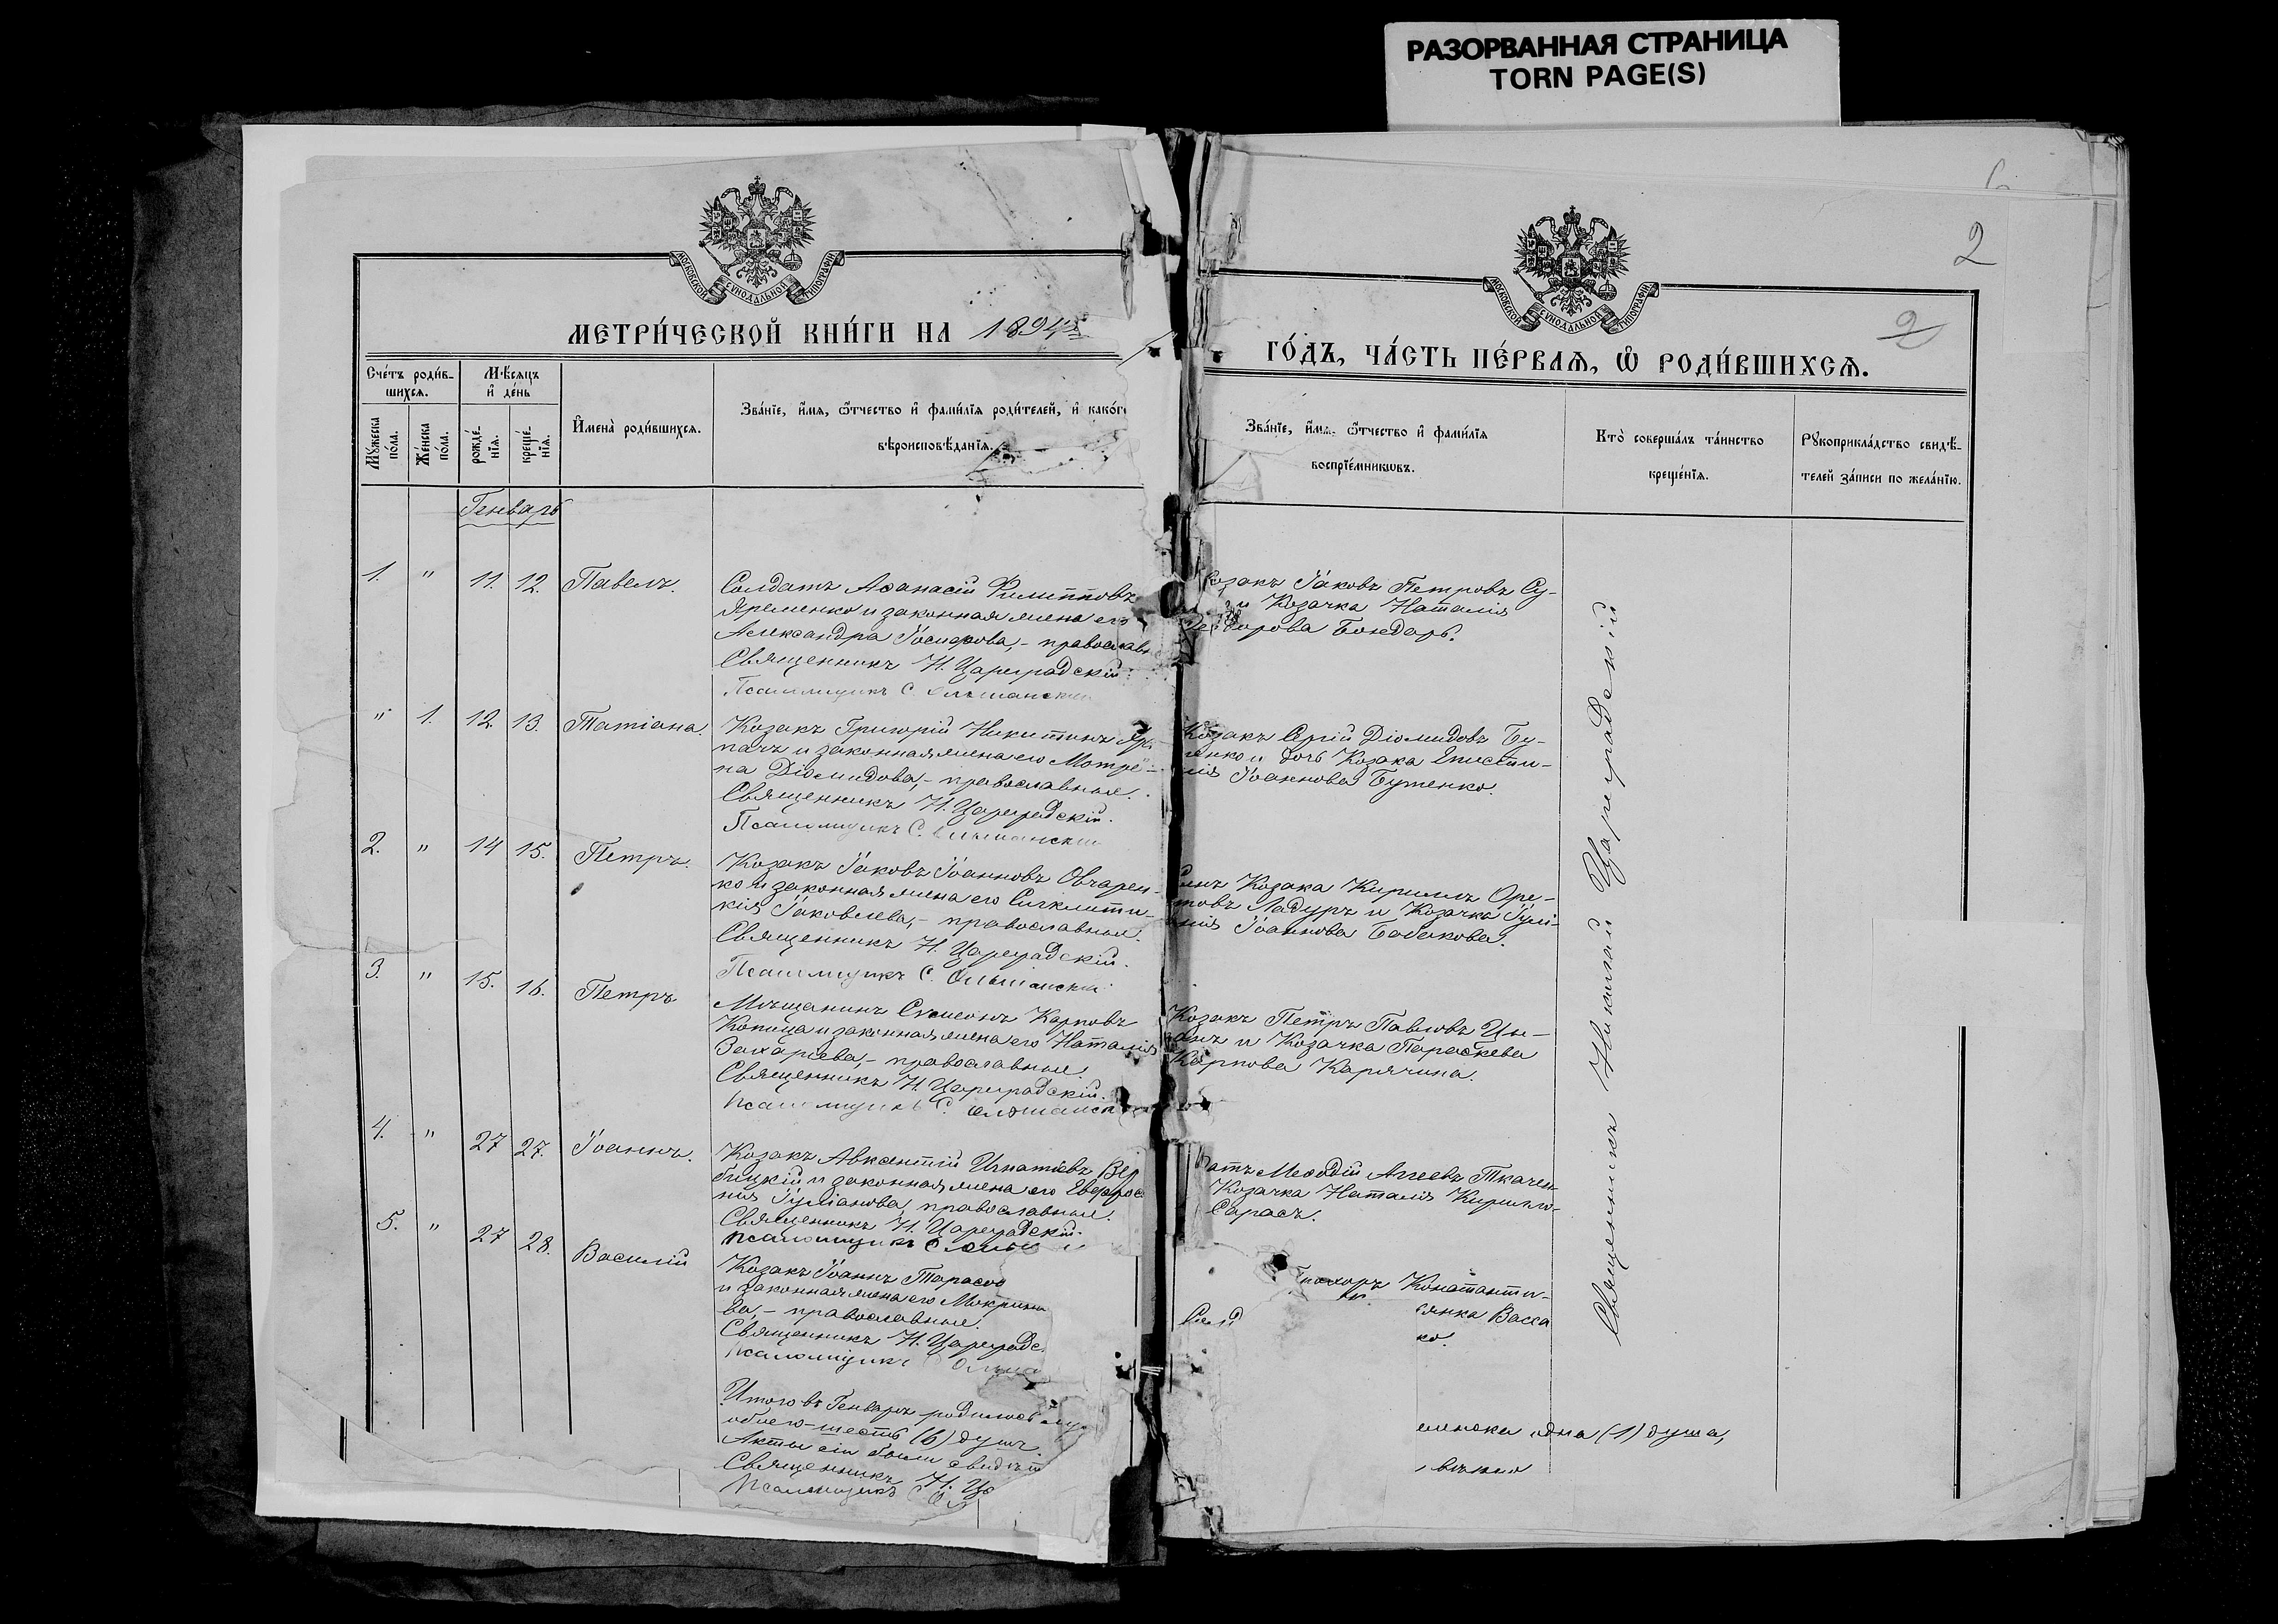 РАЗОРВАННАЯ СТРАНИЦА
TORN PAGE(S)
МОСКОВСКОЙ СѴНОДАЛЬНОЙ ТИПОГРАФІИ
МОСКОВСКОЙ СѴНОДАЛЬНОЙ ТИПОГРАФІИ
2
2
МЕТРИ́ЧЕСКОЙ КНИ́ГИ НА 1894й
ГО́ДЪ, ЧА́СТЬ ПЕ́РВАѦ, Ѡ҆ РОДИ́ВШИХСѦ.
Сче́тъ роди́в-
шихсѧ.
Мѣ́сѧцъ
и҆ де́нь
Мꙋ́жеска по́ла.
Же́нска по́ла.
рожде́-
нїѧ.
креще́-
нїѧ.
И҆мена̀ роди́вшихсѧ.
Зва́нїе, и҆́мѧ, ѻ҆́тчество и҆ фами́лїѧ роди́телей, и҆ како́гѡ
вѣроисповѣ́данїѧ.
Зва́нїе, и҆́мѧ, ѻ҆́тчество и҆ фами́лїѧ
воспрїе́мникѡвъ.
Кто̀ соверша́лъ та́инство
креще́нїѧ.
Рꙋкоприкла́дство свидѣ́-
телей за́писи по жела́нїю.
Генварь
1. " 11. 12. Павелъ.
Солдатъ Аѳанасій Филипповъ
Яременко и законная жена его
Александра Іосифова, - православн
Священникъ Н. Цареградскій.
Псаломщикъ С. Ольшанскій
Козакъ Іаковъ Петровъ Су-
и Козачка Наталія
Ѳеодорова Бондарь.
" 1. 12. 13. Татіана.
Козакъ Григорій Никитинъ
пачъ и законная жена его Матре-
на Діомидова, - православные.
Священникъ Н. Цареградскій.
Псаломщикъ С. Ольшанскій
Козакъ Сергій Діомидовъ Бу-
тенко и дочь Козака Епистим-
нія Іоаннова Бутенко.
2. " 14 15. Петръ.
Козакъ Іаковъ Іоанновъ Овчарен-
ко и законная жена его Сигклити-
кія Іаковлева, - православные.
Священникъ Н. Цареградскій.
Псаломщикъ С. Ольшанскій
Сынъ Козака Кириллъ Оре-
стовъ Ладуръ и Козачка Іулі-
анія Іоаннова Бабакова.
3. " 15. 16. Петръ
Мѣщанинъ Сѵмеонъ Карповъ
Копица и законная жена его Наталія
Захаріева, - православные.
Священникъ Н. Цареградскій.
Псаломщикъ С. Ольшанск
Козакъ Петръ Павловъ Цы-
ганъ и Козачка Параскева
Карпова Карячина.
4. " 27 27. Іоаннъ.
Козакъ Авксентій Игнатіевъ Вер
бицкій и законная жена его Евфрос
нія Іуліанова, православные.
Священникъ Н. Цареградскій.
Псаломщикъ С
Меѳодій Аггеевъ Ткачен
Козачка Наталія Кирилло-
Сарасъ.
5. " 27 28. Василій
Козакъ Іоаннъ Тарасов
и законная жена его Мокрина
ва, - православные.
Священникъ Н. Цареградс.
Псаломщикъ С Ольша
Прохоръ Константи-
янка Васса
ко.
Священникъ Николай Цареградскій
Итого въ Генварѣ родилось му
обоего - шесть (6) душъ.
Акты сіи были свидѣт
Священникъ Н. Ца
Псаломщикъ С Ол
женска одна (1) душа,